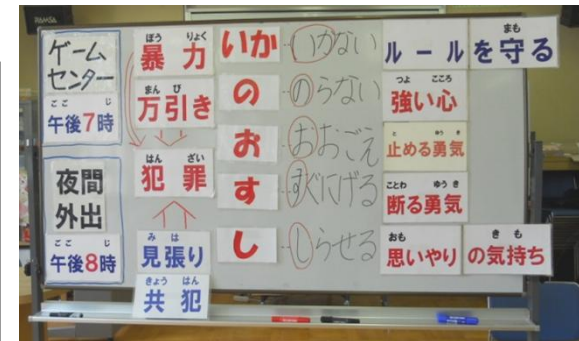 ゲーム
センター
ごご じ
午後7時
夜間
外出
ごご じ
午後8時
ぼう りょく
暴力
まん び
万引き
はん ざい
犯罪
み は
見張り
きょう はん
共犯
いか
の
お
す
し
いかない
のらない
おおごえ
すぐにげる
しらせる
まも
ルールを守る
つよ こころ
強い心
と ゆう き
止める勇気
ことわ ゆう き
断る勇気
おも き も
思いやりの気持ち